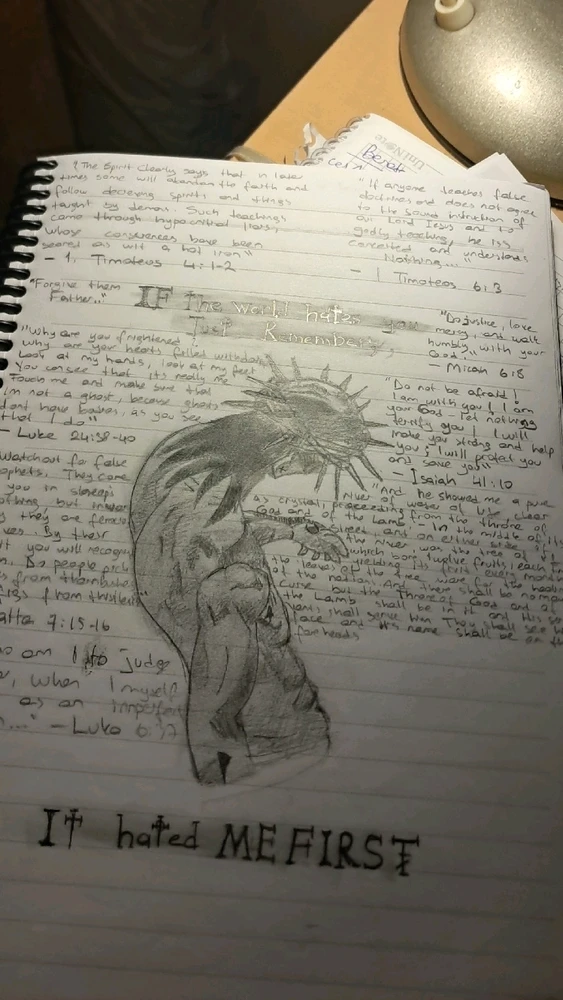 "The Spirit clearly says that in later
times some will abandon the faith and
follow deceiving spirits and things
taught by demons. Such teachings
come through hypocritical liars,
whose consciences have been
seared as wit a hot iron"
- 1. Timoteos 4:1-2
"If anyone teaches false
doctrines and does not agree
to the sound instruction of
our Lord Jesus and to
godly teaching, he iss
conceited and understands
Nothing..."
- 1 Timoteos 6:3
"Forgive them
Father.."
IF the world hates you
Just Remember,
"Why are you frightened
why are your hearts filled with
Look at my hands, look at my feet
You can see that it's really me
touch me and make sure that
I'm not a ghost, because ghosts
dont have bodies, as you see
that I do"
- Luke 24:38-40
"Do justice, love
mercy, and walk
humbly with your
God."
- Micah 6:8
"Do not be afraid!
I am with you! I am
your God - let nothing
terrify you! I will
make you strong and help
you; I will protect you
and save you"
- Isaiah 41:10
Watchout for false
They come
you in
but
they are
By their
you will recogn
Do people pick
from
from thistles"
7:15-16
"And he showed me a pure
river of water of life, clear
as crystal, proceeding from the throne of
God and of the Lamb. In the middle of its
street, and on either side of
the river was the tree of
which bore twelve fruits, each
yielding its fruit every month
the leaves of the tree were for the healing
of the nation. And there shall be no more
curse but the Throne of God and of
the Lamb shall be in it and His
shall serve Him They shall see
face and His name shall be on
foreheads
am I to judge
when I myself
as an
- Luke 6:37
It hated ME FIRST